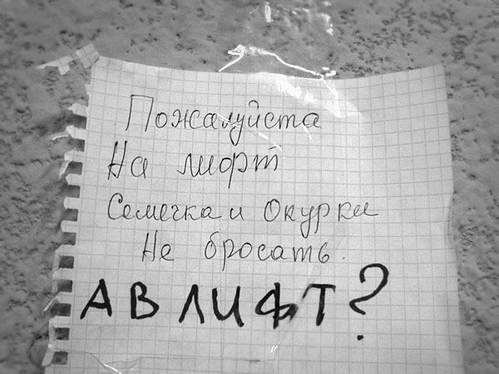 Пожалуйста
На лифт
Семечка и Окурки
Не бросать.
А В ЛИФТ?